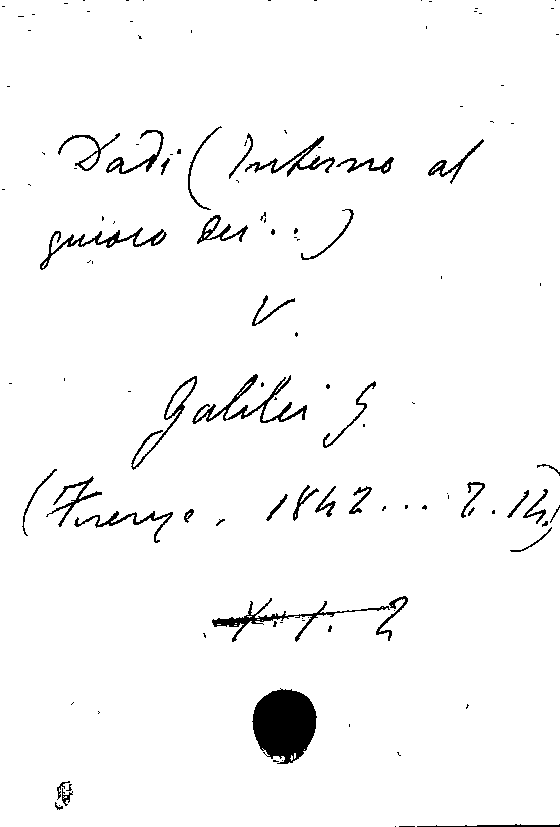 Dadi (Intorno al
giuoco dei...)
V.
Galilei G.
(Firenze, 1842... T. 14)